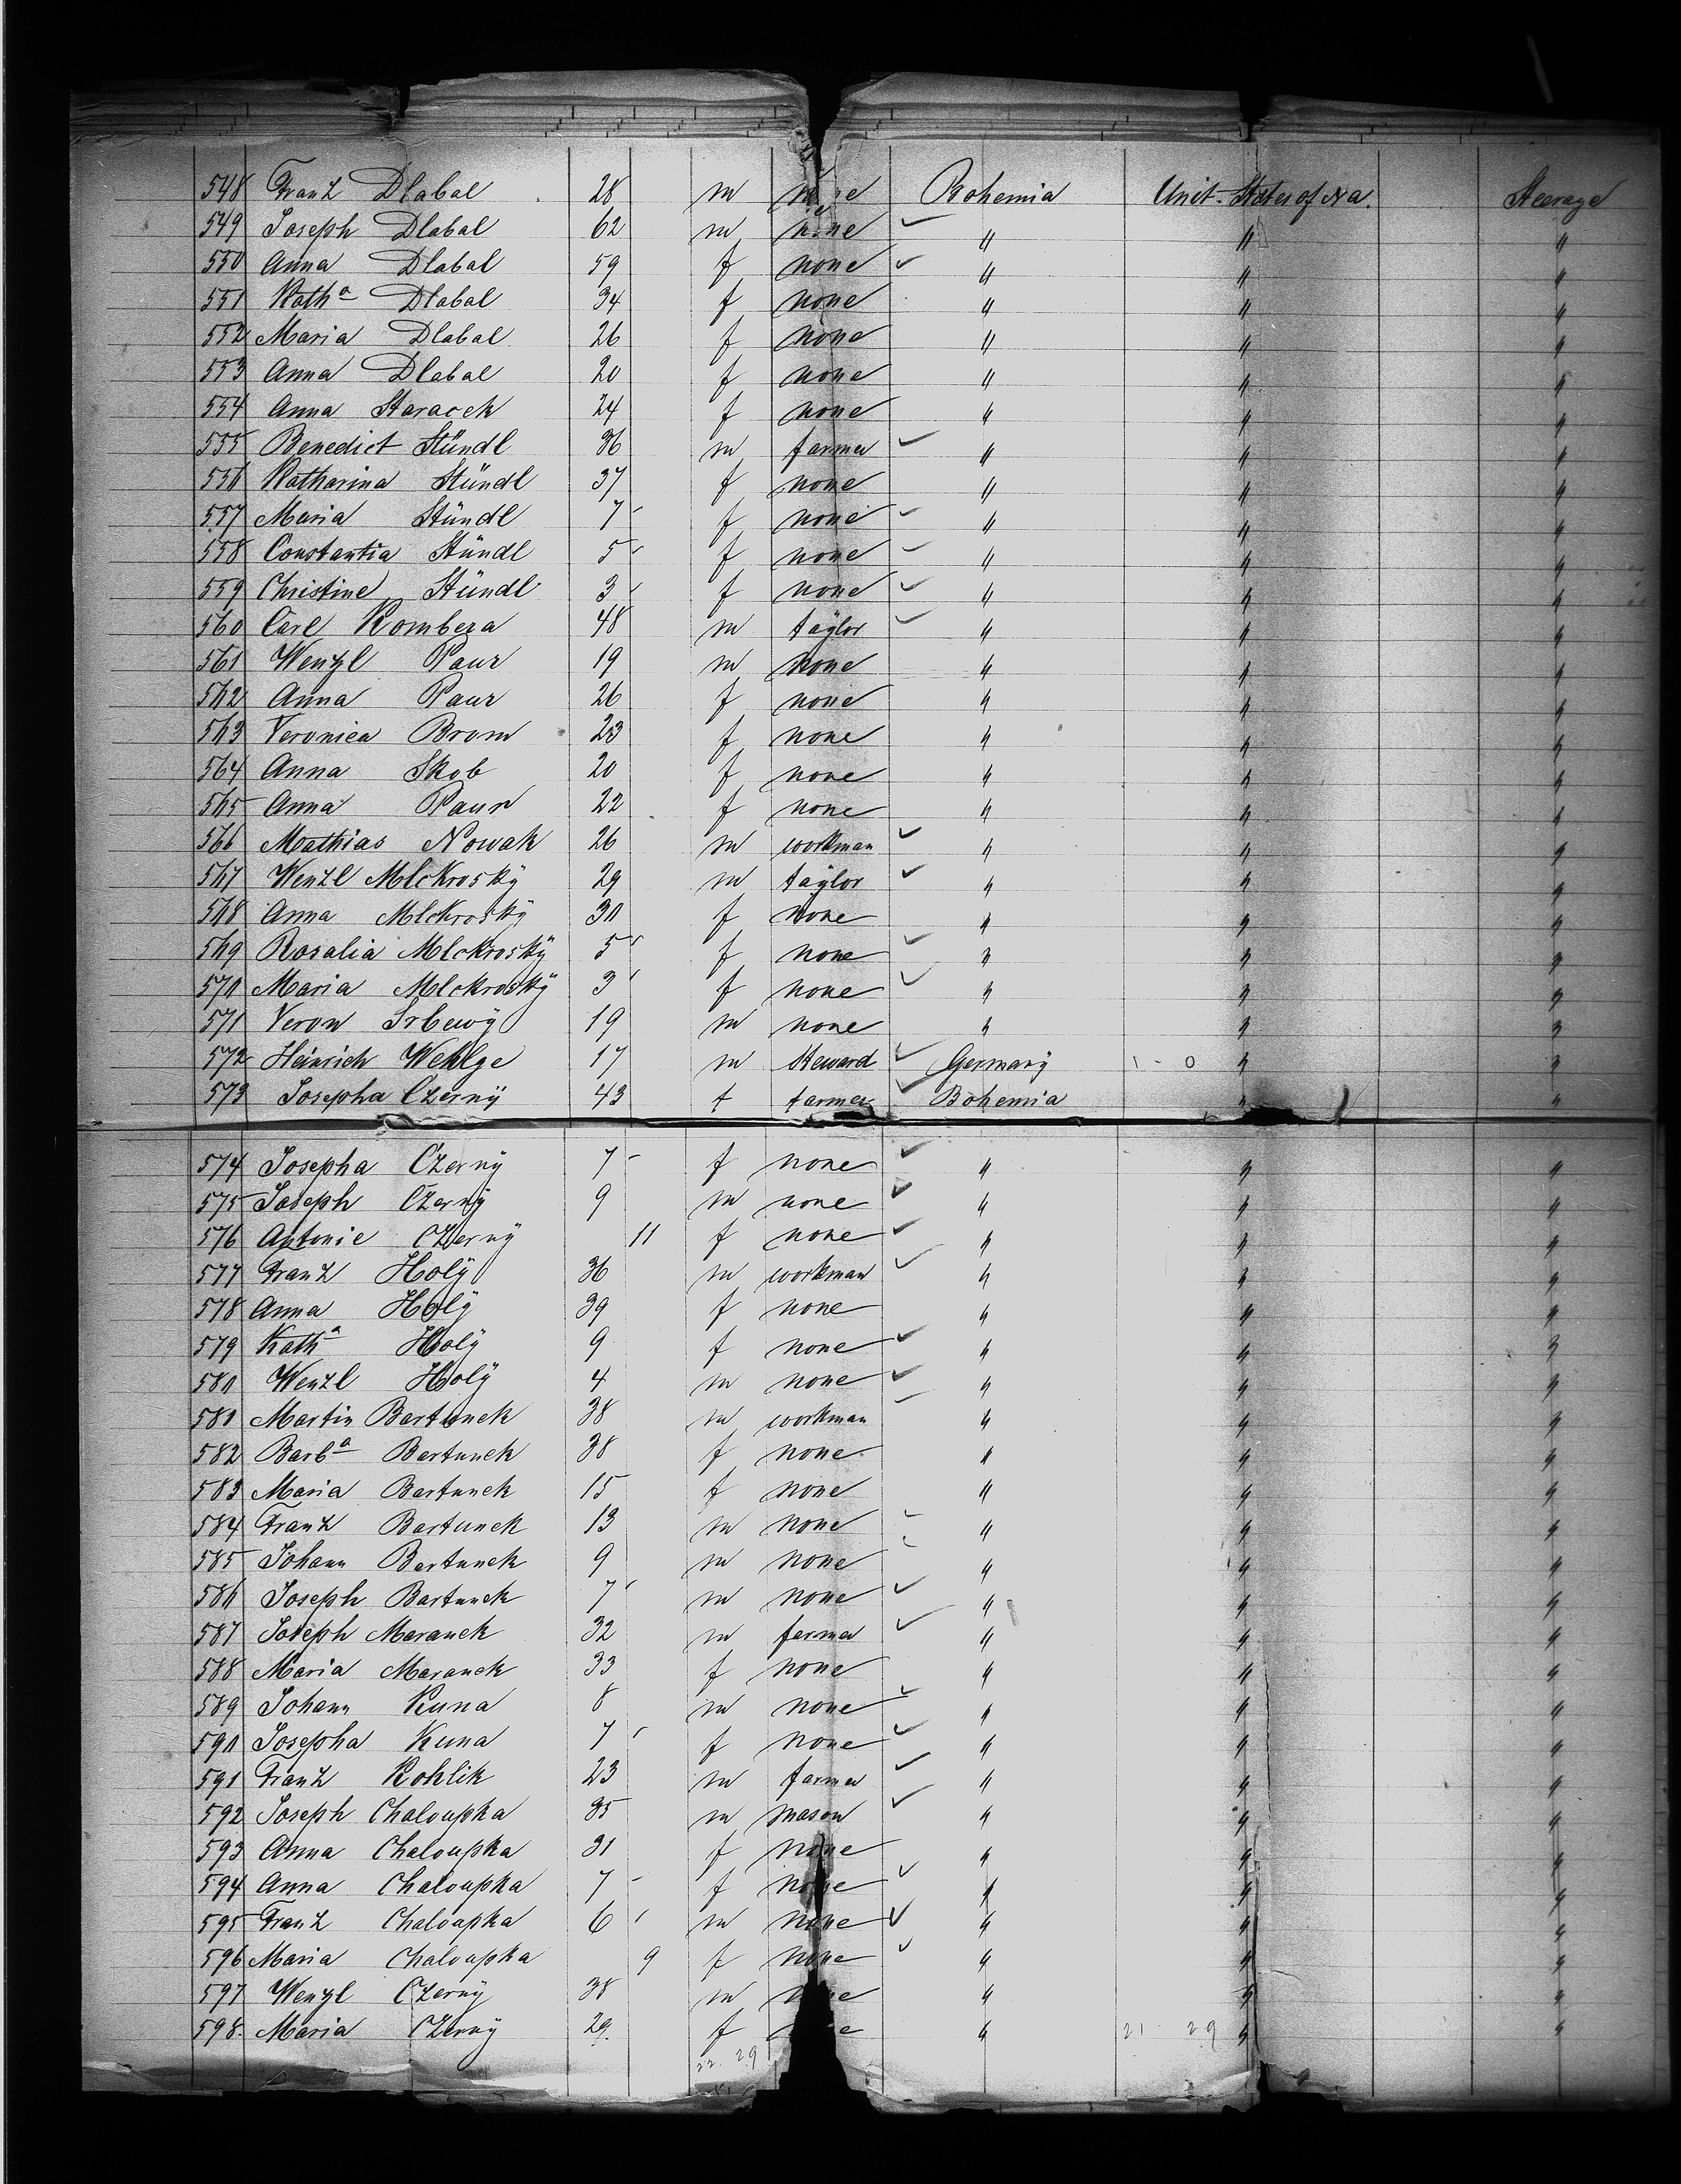 548 Franz Dlabal 28 m none Bohemia Unit. States of Na. Steerage
549 Joseph Dlabal 62 m none " " "
550 Anna Dlabal 59 f none " " "
551 Kath^a Dlabal 34 f none " " "
552 Maria Dlabal 26 f none " " "
553 Anna Dlabal 20 f none " " "
554 Anna Staracek 24 f none " " "
555 Benedict Stündl 36 m farmer " " "
556 Katharina Stündl 37 f none " " "
557 Maria Stündl 7 f none " " "
558 Constantia Stündl 5 f none " " "
559 Christine Stündl 3 f none " " "
560 Carl Rombera 48 m taÿlor " " "
561 Wenzl Paur 19 m none " " "
562 Anna Paur 26 f none " " "
563 Veronica Brom 23 f none " " "
564 Anna Skob 20 f none " " "
565 Anna Paur 22 f none " " "
566 Mathias Nowak 26 m workman " " "
567 Wenzl Mlckroskÿ 29 m taÿlor " " "
568 Anna Mlckroskÿ 30 f none " " "
569 Rosalia Mlckroskÿ 5 f none " " "
570 Maria Mlckroskÿ 3 f none " " "
571 Veron Srbewÿ 19 m none " " "
572 Heinrich Wehlge 17 m Steward Germanÿ 1 - 0 " "
573 Josepha Czernÿ 43 f farmer Bohemia " "
574 Josepha Czernÿ 7 f none " " "
575 Joseph Czernÿ 9 m none " " "
576 Antonie Czernÿ 11 f none " " "
577 Franz Holÿ 36 m workman " " "
578 Anna Holÿ 39 f none " " "
579 Kath^a Holÿ 9 f none " " "
580 Wenzl Holÿ 4 m none " " "
581 Martin Bartunek 38 m workman " " "
582 Barb^a Bartunek 38 f none " " "
583 Maria Bartunek 15 f none " " "
584 Franz Bartunek 13 m none " " "
585 Johann Bartunek 9 m none " " "
586 Joseph Bartunek 7 m none " " "
587 Joseph Maranek 32 m farmer " " "
588 Maria Maranek 33 f none " " "
589 Johann Kuna 8 m none " " "
590 Josepha Kuna 7 f none " " "
591 Franz Kohlik 23 m farmer " " "
592 Joseph Chaloupka 35 m mason " " "
593 Anna Chaloupka 31 f none " " "
594 Anna Chaloupka 7 f none " " "
595 Franz Chaloupka 6 m none " " "
596 Maria Chaloupka 9 f none " " "
597 Wenzl Czernÿ 38 m " " "
598. Maria Czernÿ 29. f " 21 - 29 " "
22. 29